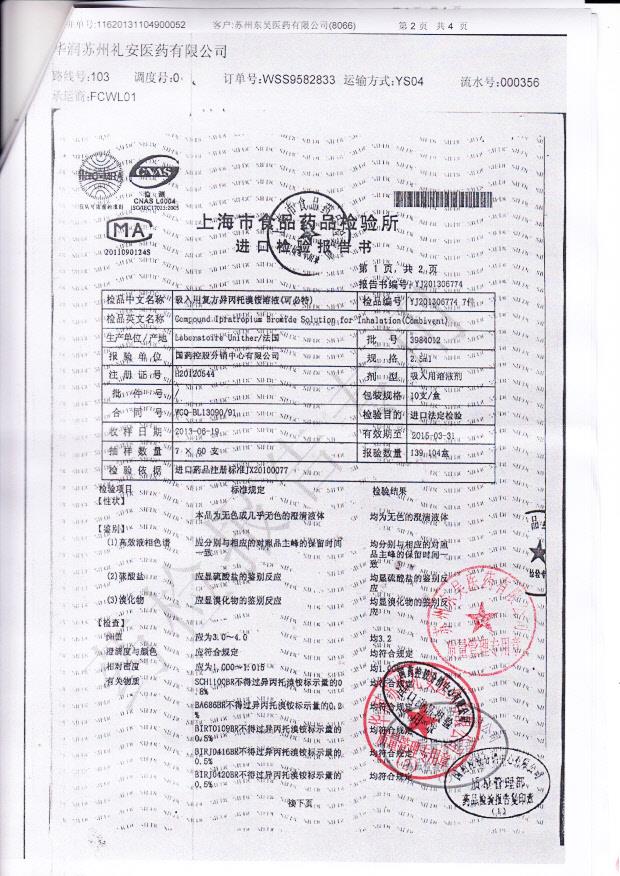 单号:11620131104900052 客户:苏州东吴医药有限公司(8066) 第 2 页 共 4 页
华润苏州礼安医药有限公司
路线号:103 调度号:0 订单号:WSS9582833 运输方式:YS04 流水号:000356
承运商:FCWL01
CNAS
检 测
CNAS L0004
MA
2011090124S
上海市食品药品检验所
进口检验报告书
第 1 页, 共 2 页
报告书编号: YJ201306774
检品中文名称 吸入用复方异丙托溴铵溶液(可必特) 检品编号 YJ201306774 7件
检品英文名称 Compound Ipratropium Bromide Solution for Inhalation(Combivent)
生产单位/产地 Laboratoire Unither/法国 批 号 3984012
报 验 单 位 国药控股分销中心有限公司 规 格 2.5ml
注 册 证 号 H20120544 剂 型 吸入用溶液剂
批 件 号 / 包装规格 10支/盒
合 同 号 WCQ-BL13090/91 检验目的 进口法定检验
收 样 日 期 2013-06-19 有效期至 2015-03-31
抽 样 数 量 7 × 60 支 报验数量 139,104盒
检 验 依 据 进口药品注册标准JX20100077
检验项目 标准规定 检验结果
【性状】
本品为无色或几乎无色的澄清液体 均为无色的澄清液体
【鉴别】
(1)高效液相色谱 应分别与相应的对照品主峰的保留时间一致 均分别与相应的对照品主峰的保留时间一致
(2)硫酸盐 应显硫酸盐的鉴别反应 均显硫酸盐的鉴别反应
(3)溴化物 应显溴化物的鉴别反应 均显溴化物的鉴别反应
【检查】
pH值 应为3.0~4.0 均3.2
澄清度与颜色 应符合规定 均符合规定
相对密度 应为1.000~1.015 均1.0
有关物质 SCH1100BR不得过异丙托溴铵标示量的1.8% 均符合规定
BA686BR不得过异丙托溴铵标示量的0.2% 均符合规定
BIRT0109BR不得过异丙托溴铵标示量的0.5% 均符合规定
BIRJ0416BR不得过异丙托溴铵标示量的0.5% 均符合规定
BIRJ0420BR不得过异丙托溴铵标示量的0.5% 均符合规定
接下页
质量管理部
药品检验报告复印章
(1)